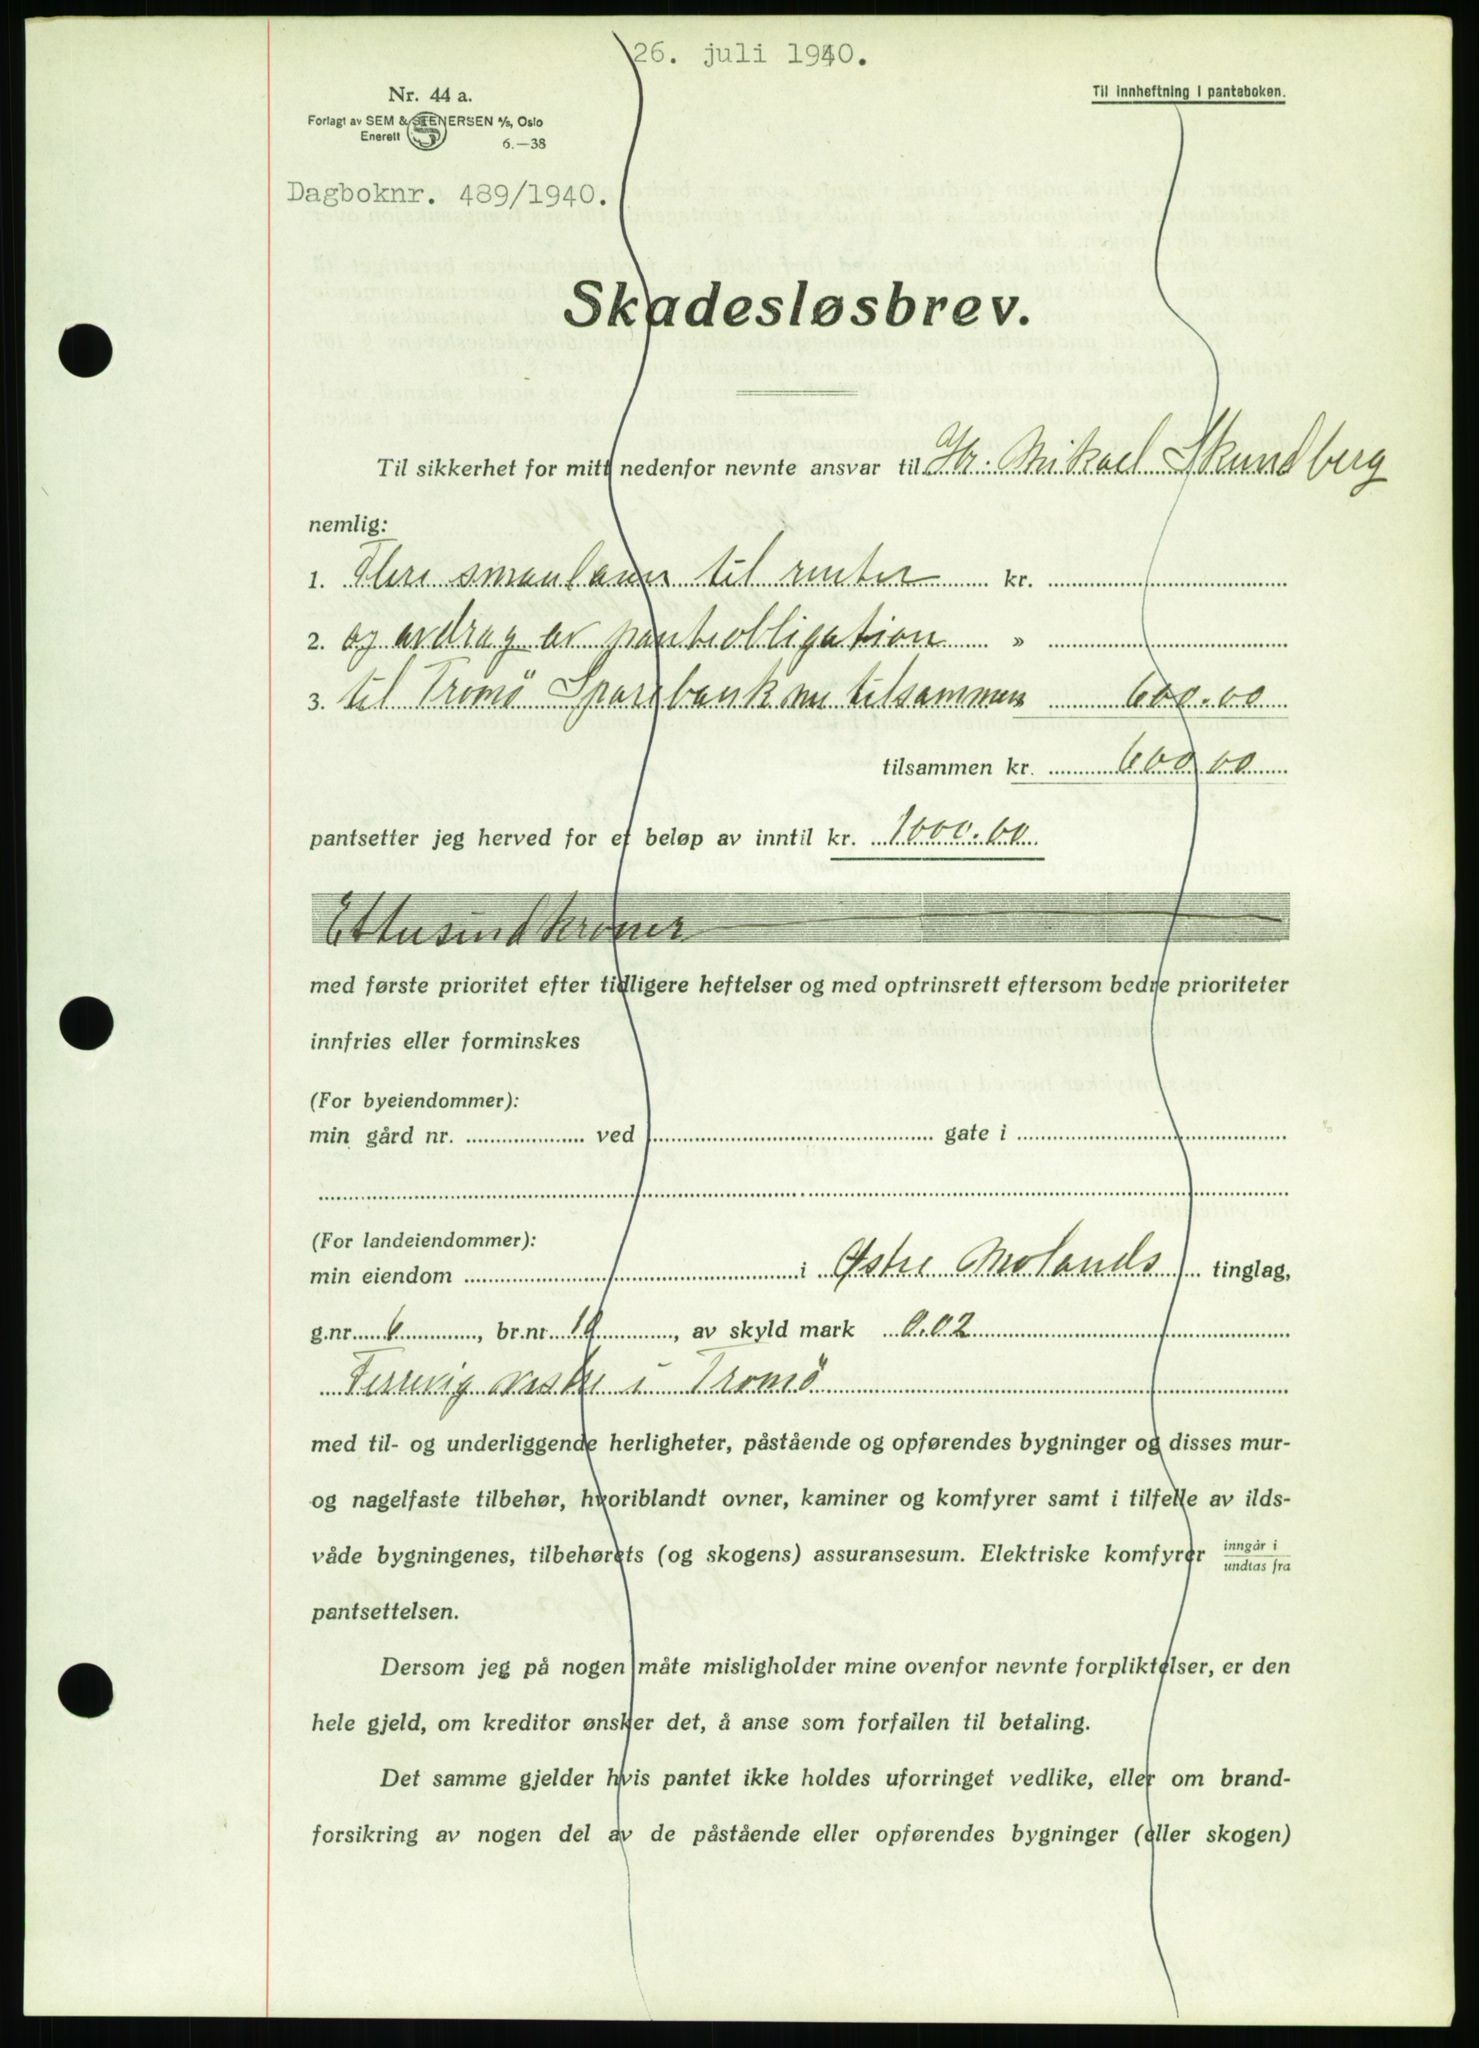 26. juli 1940.
Nr. 44 a.
Til innheftning i panteboken.
Forlagt av SEM & STENERSEN A/S, Oslo
Enerett
6.—38
Dagboknr. 489/1940.
Skadesløsbrev.
Til sikkerhet for mitt nedenfor nevnte ansvar til Hr. Mikael Skundberg
nemlig:
1. Flere smaalaan til renter kr.
2. og avdrag av panteobligation »
3. til Tromö Sparebank nu tilsammen 600.00
tilsammen kr. 600.00
pantsetter jeg herved for et beløp av inntil kr. 1000.00
Ettusind kroner
med første prioritet efter tidligere heftelser og med optrinsrett eftersom bedre prioriteter
innfries eller forminskes
(For byeiendommer):
min gård nr. ved gate i
(For landeiendommer):
min eiendom i Østre Molands tinglag,
g.nr. 6, br.nr. 10, av skyld mark 0.02
Færevig vestre i Tromö
med til- og underliggende herligheter, påstående og opførendes bygninger og disses mur-
og nagelfaste tilbehør, hvoriblandt ovner, kaminer og komfyrer samt i tilfelle av ilds-
våde bygningenes, tilbehørets (og skogens) assuransesum. Elektriske komfyrer inngår i
undtas fra
pantsettelsen.
Dersom jeg på nogen måte misligholder mine ovenfor nevnte forpliktelser, er den
hele gjeld, om kreditor ønsker det, å anse som forfallen til betaling.
Det samme gjelder hvis pantet ikke holdes uforringet vedlike, eller om brand-
forsikring av nogen del av de påstående eller opførendes bygninger (eller skogen)